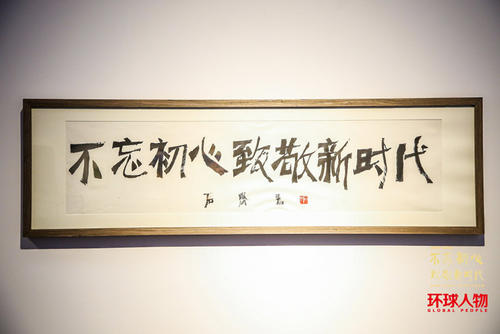 不忘初心致敬新时代
不忘初心
致敬新时代
环球人物
GLOBAL PEOPLE